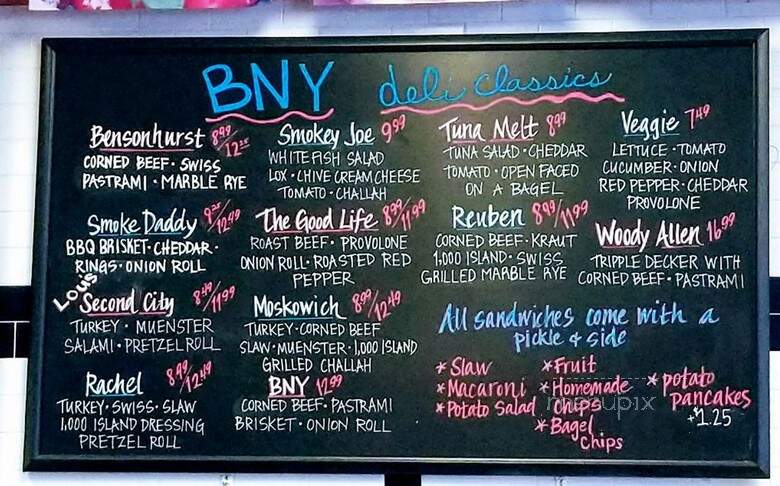 BNY deli classics
Bensonhurst 8.99/12.25
CORNED BEEF · SWISS
PASTRAMI · MARBLE RYE
Smoke Daddy 9.25/12.49
BBQ BRISKET · CHEDDAR ·
RINGS · ONION ROLL
Lou's
Second City 8.49/11.99
TURKEY · MUENSTER
SALAMI · PRETZEL ROLL
Rachel 8.99/12.49
TURKEY · SWISS · SLAW
1,000 ISLAND DRESSING
PRETZEL ROLL
Smokey Joe 9.99
WHITEFISH SALAD
LOX · CHIVE CREAM CHEESE
TOMATO · CHALLAH
The Good Life 8.99/11.99
ROAST BEEF · PROVOLONE
ONION ROLL · ROASTED RED
PEPPER
Moskowich 8.99/12.49
TURKEY · CORNED BEEF
SLAW · MUENSTER · 1,000 ISLAND
GRILLED CHALLAH
BNY 12.99
CORNED BEEF · PASTRAMI
BRISKET · ONION ROLL
Tuna Melt 8.99
TUNA SALAD · CHEDDAR
TOMATO · OPEN FACED
ON A BAGEL
Reuben 8.99/11.99
CORNED BEEF · KRAUT
1,000 ISLAND · SWISS
GRILLED MARBLE RYE
Veggie 7.49
LETTUCE · TOMATO
CUCUMBER · ONION
RED PEPPER · CHEDDAR
PROVOLONE
Woody Allen 16.99
TRIPPLE DECKER WITH
CORNED BEEF · PASTRAMI
All sandwiches come with a
pickle & side
* Slaw
* Macaroni
* Potato Salad
* Fruit
* Homemade
chips
* Bagel
chips
* potato
pancakes
+$1.25
menupix